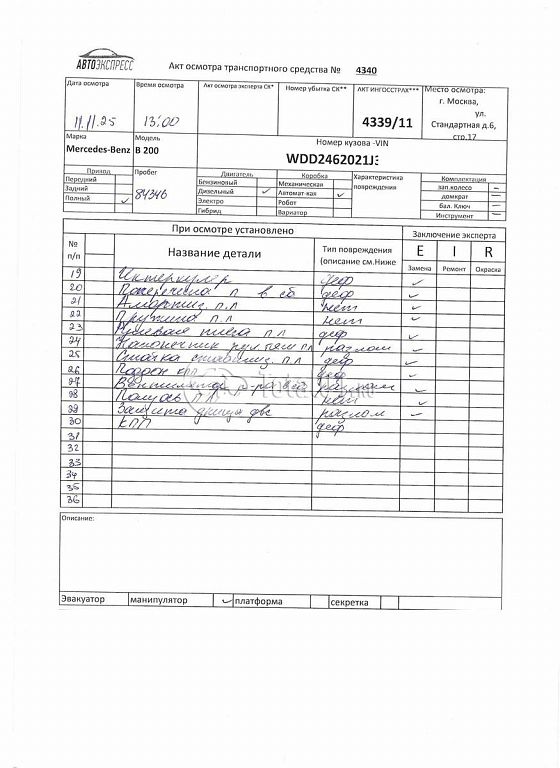 АВТОЭКСПРЕСС
Акт осмотра транспортного средства № 4340
Дата осмотра Время осмотра Акт осмотра эксперта СК* Номер убытка СК** АКТ ИНГОССТРАХ*** Место осмотра:
г. Москва,
ул.
11.11.25 13:00 4339/11 Стандартная д.6,
стр.17
Марка Модель Номер кузова -VIN
Mercedes-Benz B 200 WDD2462021J
Привод Пробег Двигатель Коробка Характеристика повреждения Комплектация
Передний Бензиновый Механическая зап.колесо –
Задний 84346 Дизельный ✓ Автомат-кая ✓ домкрат –
Полный ✓ Электро Робот бал. Ключ –
Гибрид Вариатор Инструмент –
При осмотре установлено Заключение эксперта
№ п/п Название детали Тип повреждения (описание см.Ниже E I R
Замена Ремонт Окраска
19 Интеркулер деф ✓
20 Поперечина п в сб деф ✓
21 Амортиз. п.л нет ✓
22 Пружина п.л нет ✓
23 Рулевая тяга п л деф ✓
24 Наконечник рул тяги пл разлом ✓
25 Стойка стабилиз. п.л деф ✓
26 Поддон кпп деф ✓
27 Вентилятор ✓
28 Полуось п л ✓
29 Защита днища двс разлом ✓
30 КПП деф
31
32
33
34
35
36
Описание:
Эвакуатор манипулятор ✓ платформа секретка